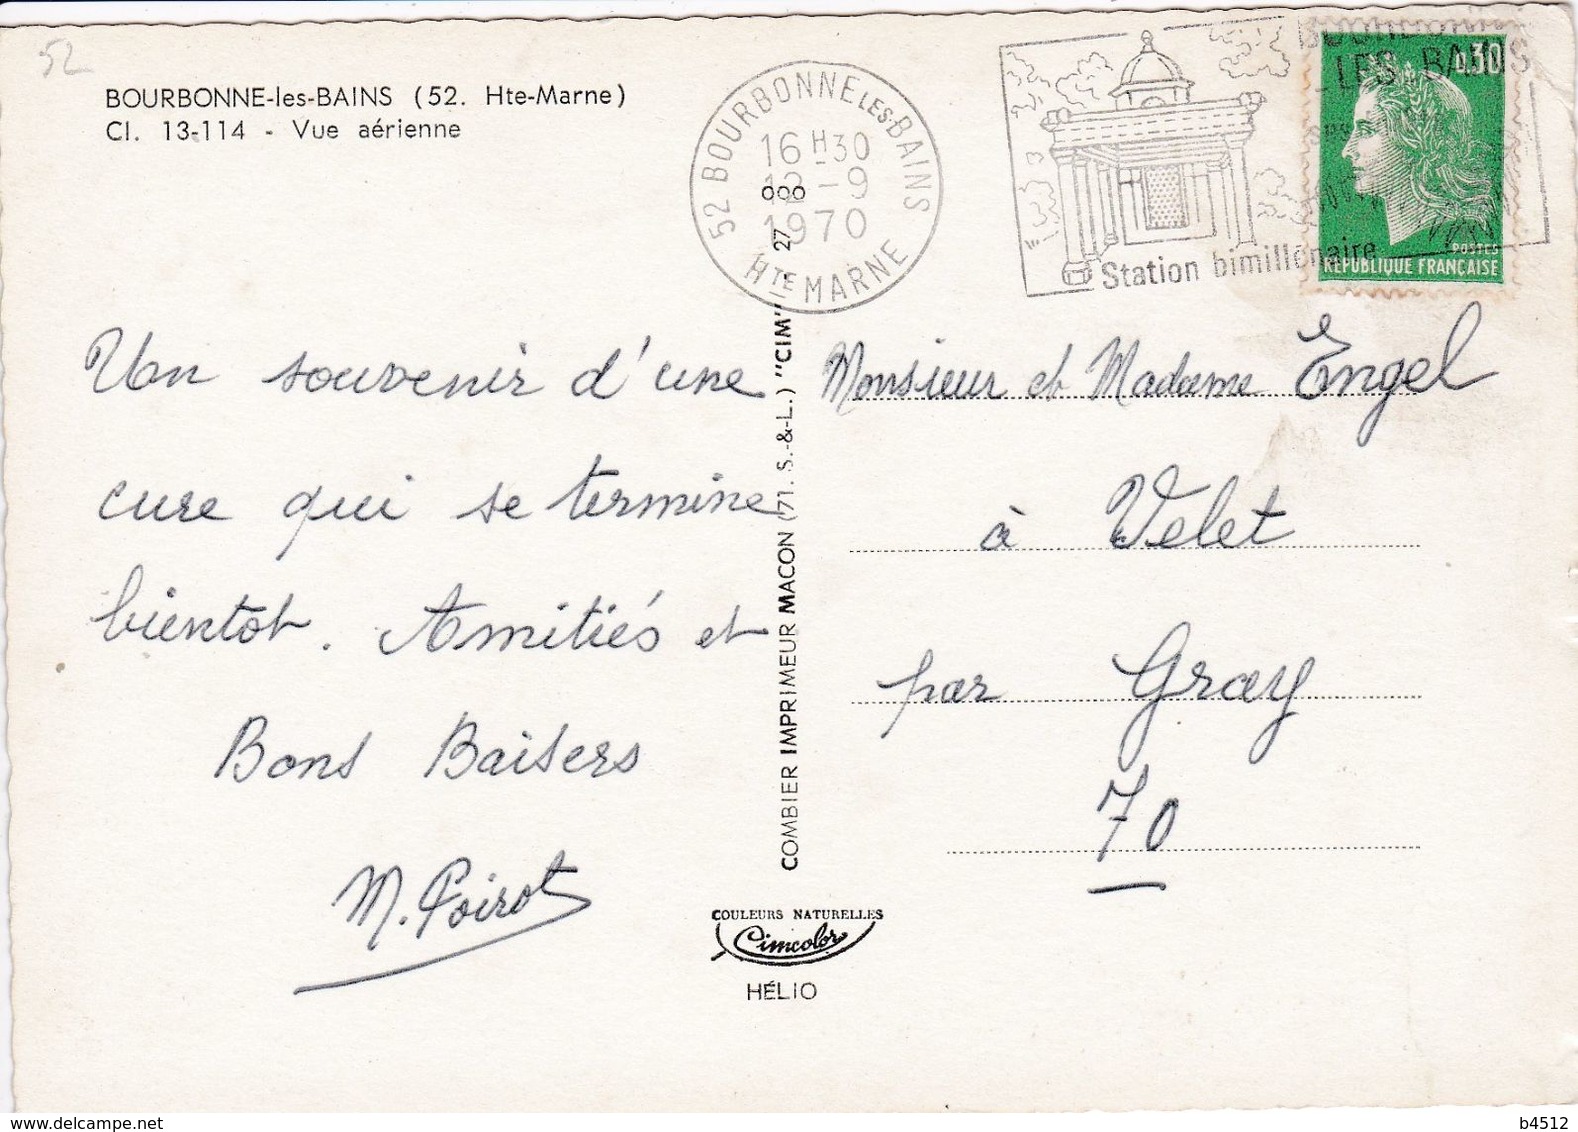 52
BOURBONNE-les-BAINS (52. Hte-Marne)
Cl. 13-114 - Vue aérienne
52 BOURBONNE LES BAINS
16 H 30
12-9
1970
HTE MARNE
BOURBONNE
LES BAINS
Station bimillénaire
0,30
POSTES
REPUBLIQUE FRANÇAISE
ooo
27
COMBIER IMPRIMEUR MACON (71. S.-&-L.) "CIM"
Un souvenir d'une
cure qui se termine
bientot. Amitiés et
Bons Baisers
M. Poirot
Monsieur et Madame Engel
à Velet
par Gray
70
COULEURS NATURELLES
Cimcolor
HÉLIO
www.delcampe.net
b4512